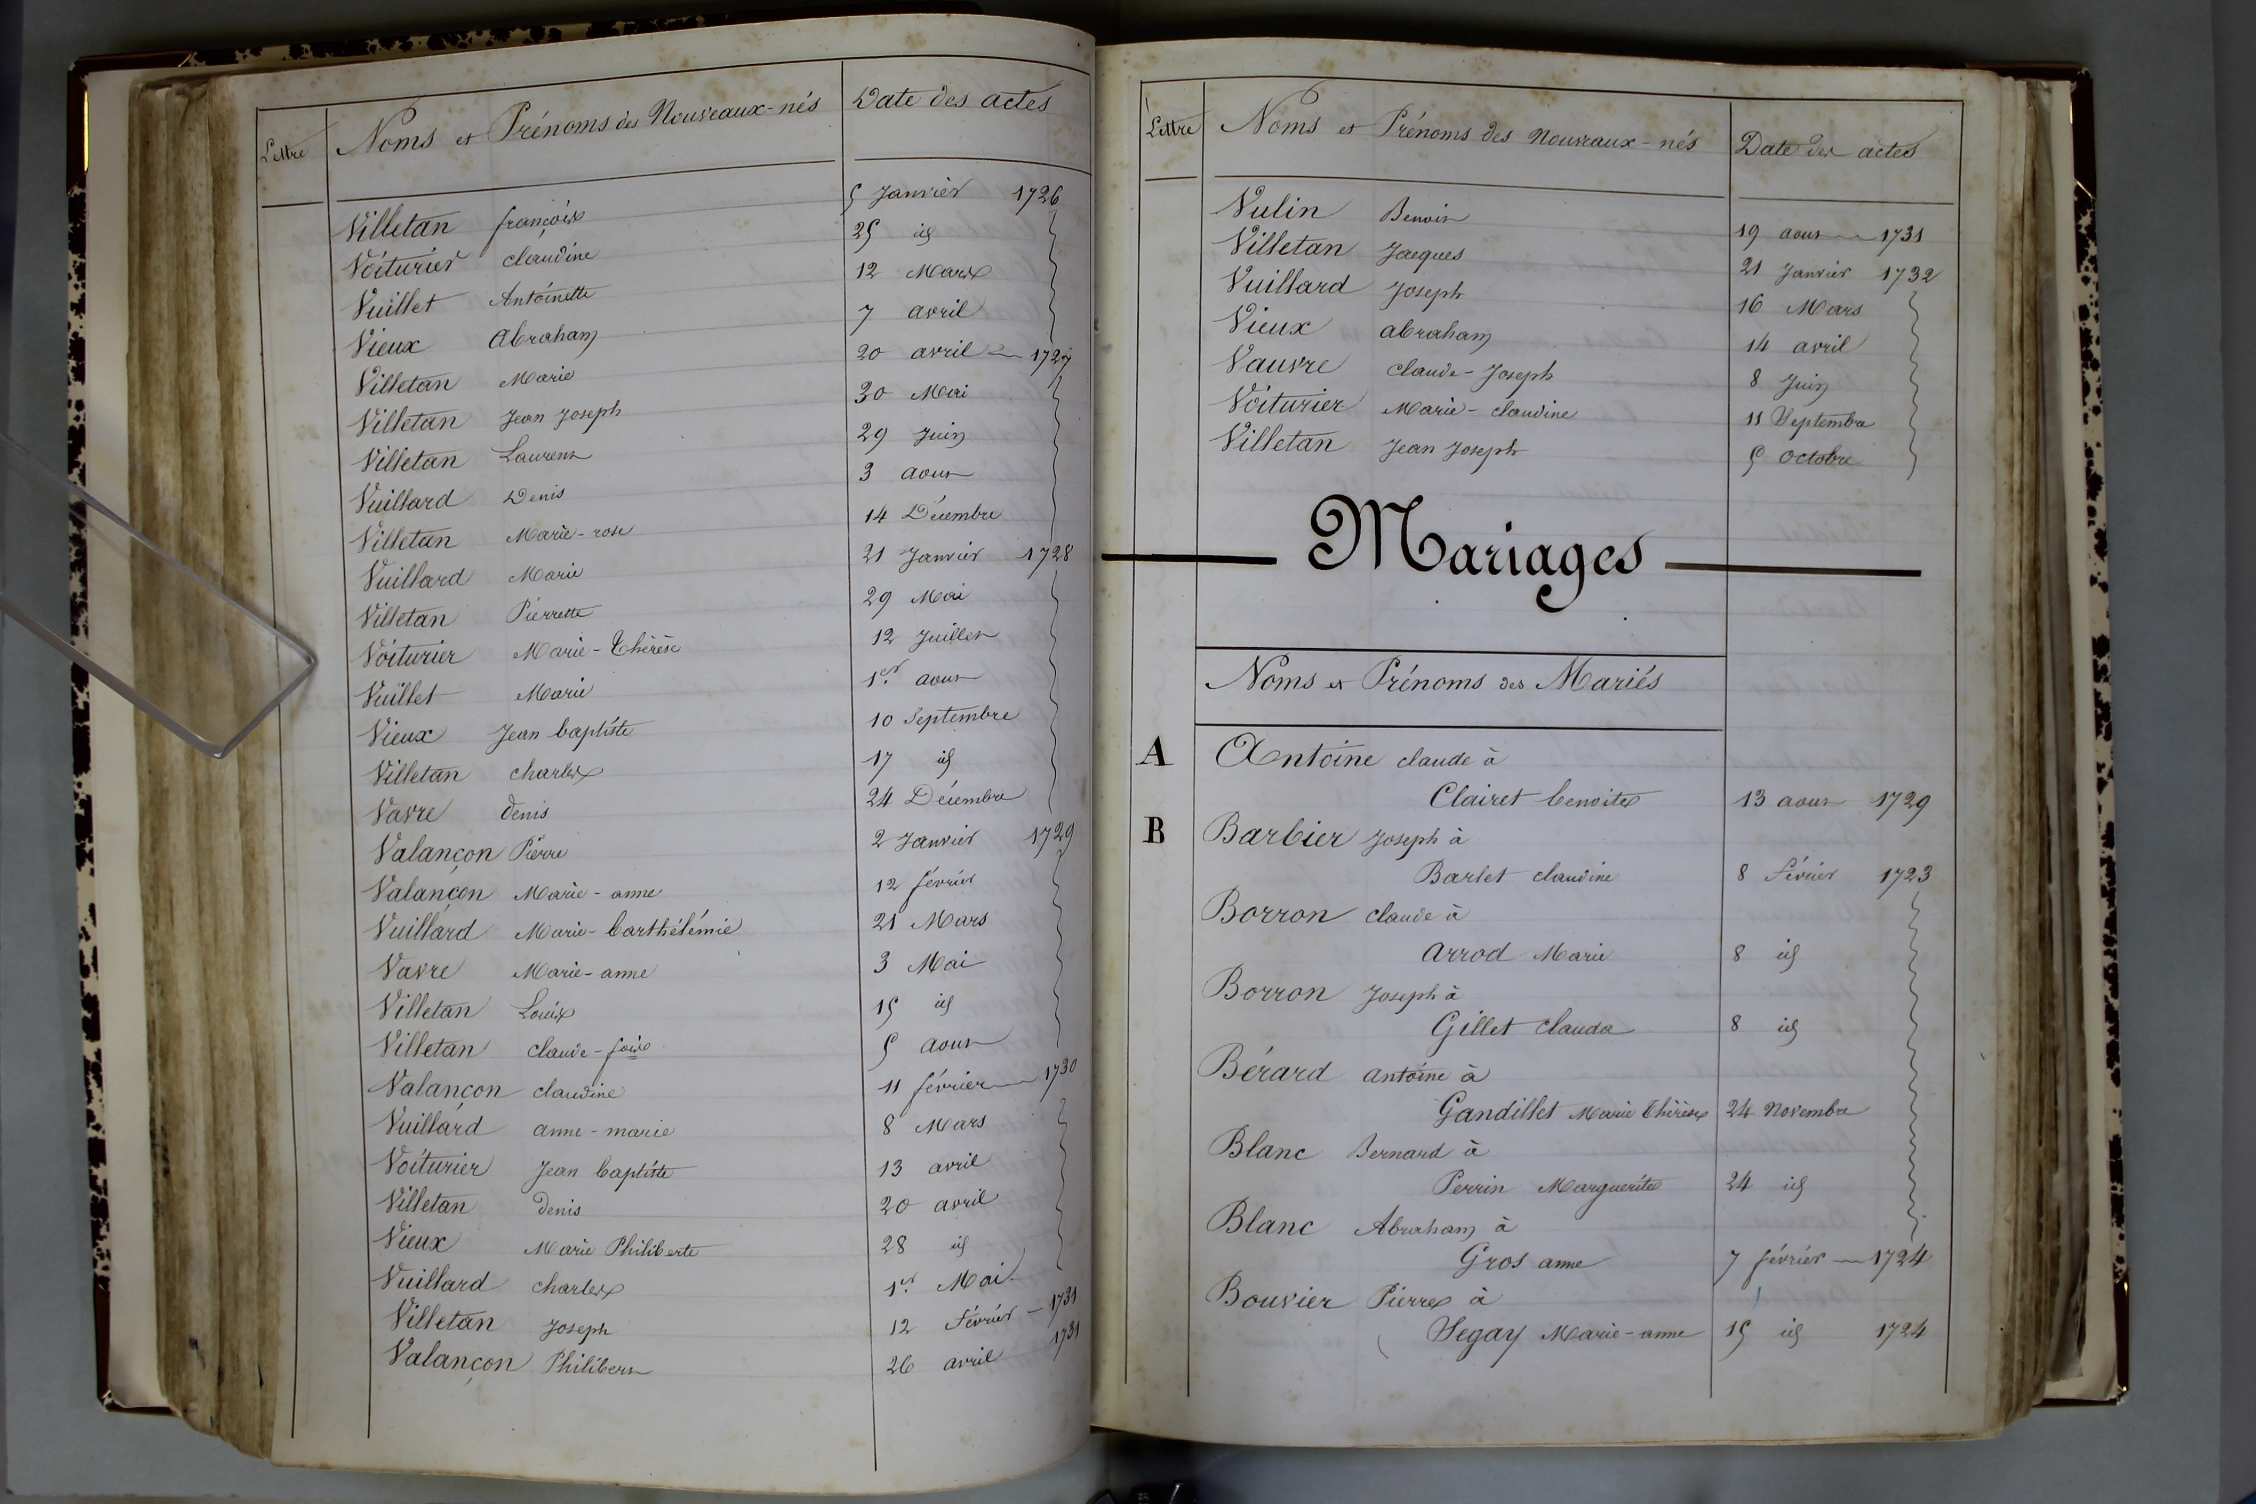 Lettre Noms et Prénoms des Nouveaux-nés Date des actes
Villetan françois 5 Janvier 1726
Voiturier claudine 25 id
Vuillet Antoinette 12 Mars
Vieux Abraham 7 avril
Villetan Marie 20 avril 1727
Villetan Jean Joseph 30 Mai
Villetan Laurent 29 Juin
Vuillard Denis 3 aout
Villetan Marie-rose 14 Décembre
Vuillard Marie 21 Janvier 1728
Villetan Pierrette 29 Mai
Voiturier Marie-Thérèse 12 Juillet
Vuillet Marie 1er aout
Vieux Jean baptiste 10 Septembre
Villetan charles 17 id
Vavre denis 24 Décembre
Valançon Pierre 2 Janvier 1729
Valançon Marie-anne 12 février
Vuillard Marie-barthélémie 21 Mars
Vavre Marie-anne 3 Mai
Villetan Louis 15 id
Villetan claude-fois 5 aout
Valançon claudine 11 février 1730
Vuillard anne-marie 8 Mars
Voiturier Jean baptiste 13 avril
Villetan denis 20 avril
Vieux Marie Philiberte 28 id
Vuillard charles 1er Mai
Villetan Joseph 12 Février - 1731
Valançon Philibert 26 avril 1731
Lettre Noms et Prénoms des Nouveaux-nés Date des actes
Vulin Benoit 19 aout 1731
Villetan Jacques 21 Janvier 1732
Vuillard Joseph 16 Mars
Vieux abraham 14 avril
Vauvre claude-Joseph 8 Juin
Voiturier Marie-claudine 11 Septembre
Villetan Jean Joseph 5 octobre
Mariages
Noms et Prénoms des Mariés
A Antoine claude à
Clairet benoite 13 aout 1729
B Barbier Joseph à
Barlet claudine 8 Février 1723
Borron claude à
Arrod Marie 8 id
Borron Joseph à
Gillet clauda 8 id
Bérard antoine à
Gandillet Marie Thérèse 24 Novembre
Blanc Bernard à
Perrin Marguerite 24 id
Blanc Abraham à
Gros anne 7 février 1724
Bouvier Pierre à
Segay Marie-anne 15 id 1724